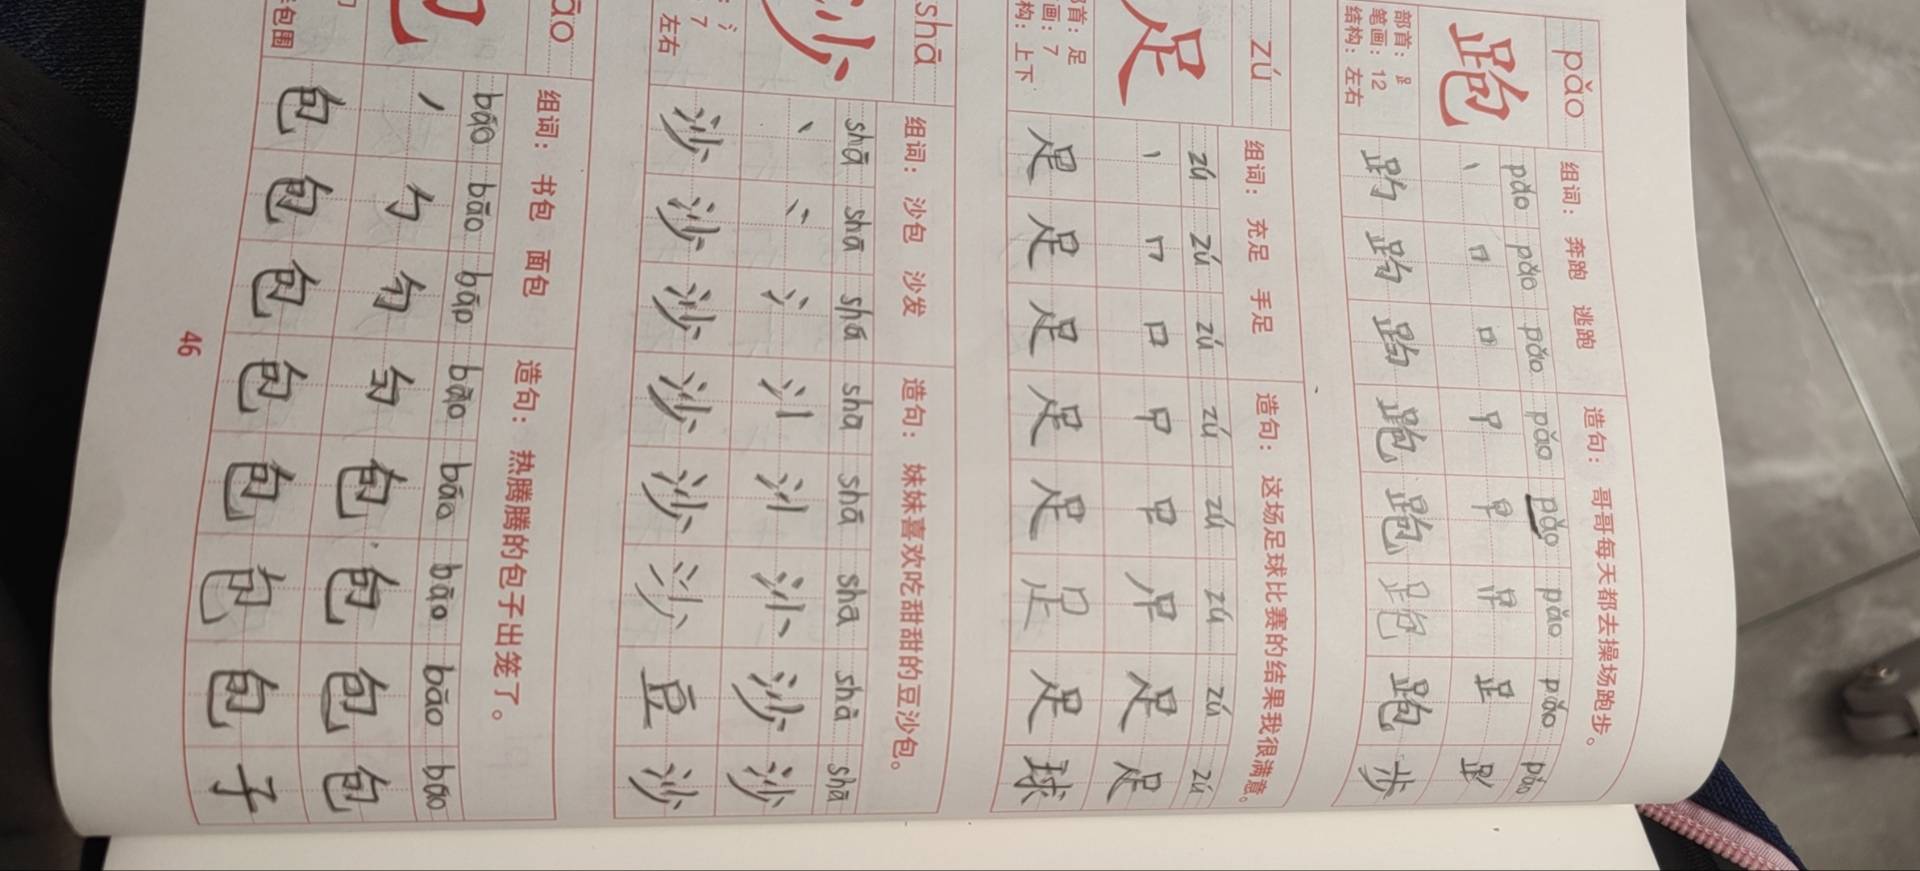 pǎo 组词：奔跑 逃跑 造句：哥哥每天都去操场跑步。
跑 pǎo pǎo pǎo pǎo pǎo pǎo pǎo pǎo
部首：⻊
笔画：12
结构：左右
跑 跑 跑 跑 步
zú 组词：充足 手足 造句：这场足球比赛的结果我很满意。
足 zú zú zú zú zú zú zú zú
丶 口 足 足
首：足
画：7
构：上下
足 足 足 足 足 足 足 球
shā 组词：沙包 沙发 造句：妹妹喜欢吃甜甜的豆沙包。
沙 shā shā shā shā shā shā shā shā
丶 氵 沙 沙
：氵
：7
左右
沙 沙 沙 沙 沙 沙 豆 沙
āo 组词：书包 面包 造句：热腾腾的包子出笼了。
bāo bāo bāo bāo bāo bāo bāo bāo
丿 勹 包 包 包 包
包围
包 包 包 包 包 包 包 子
46